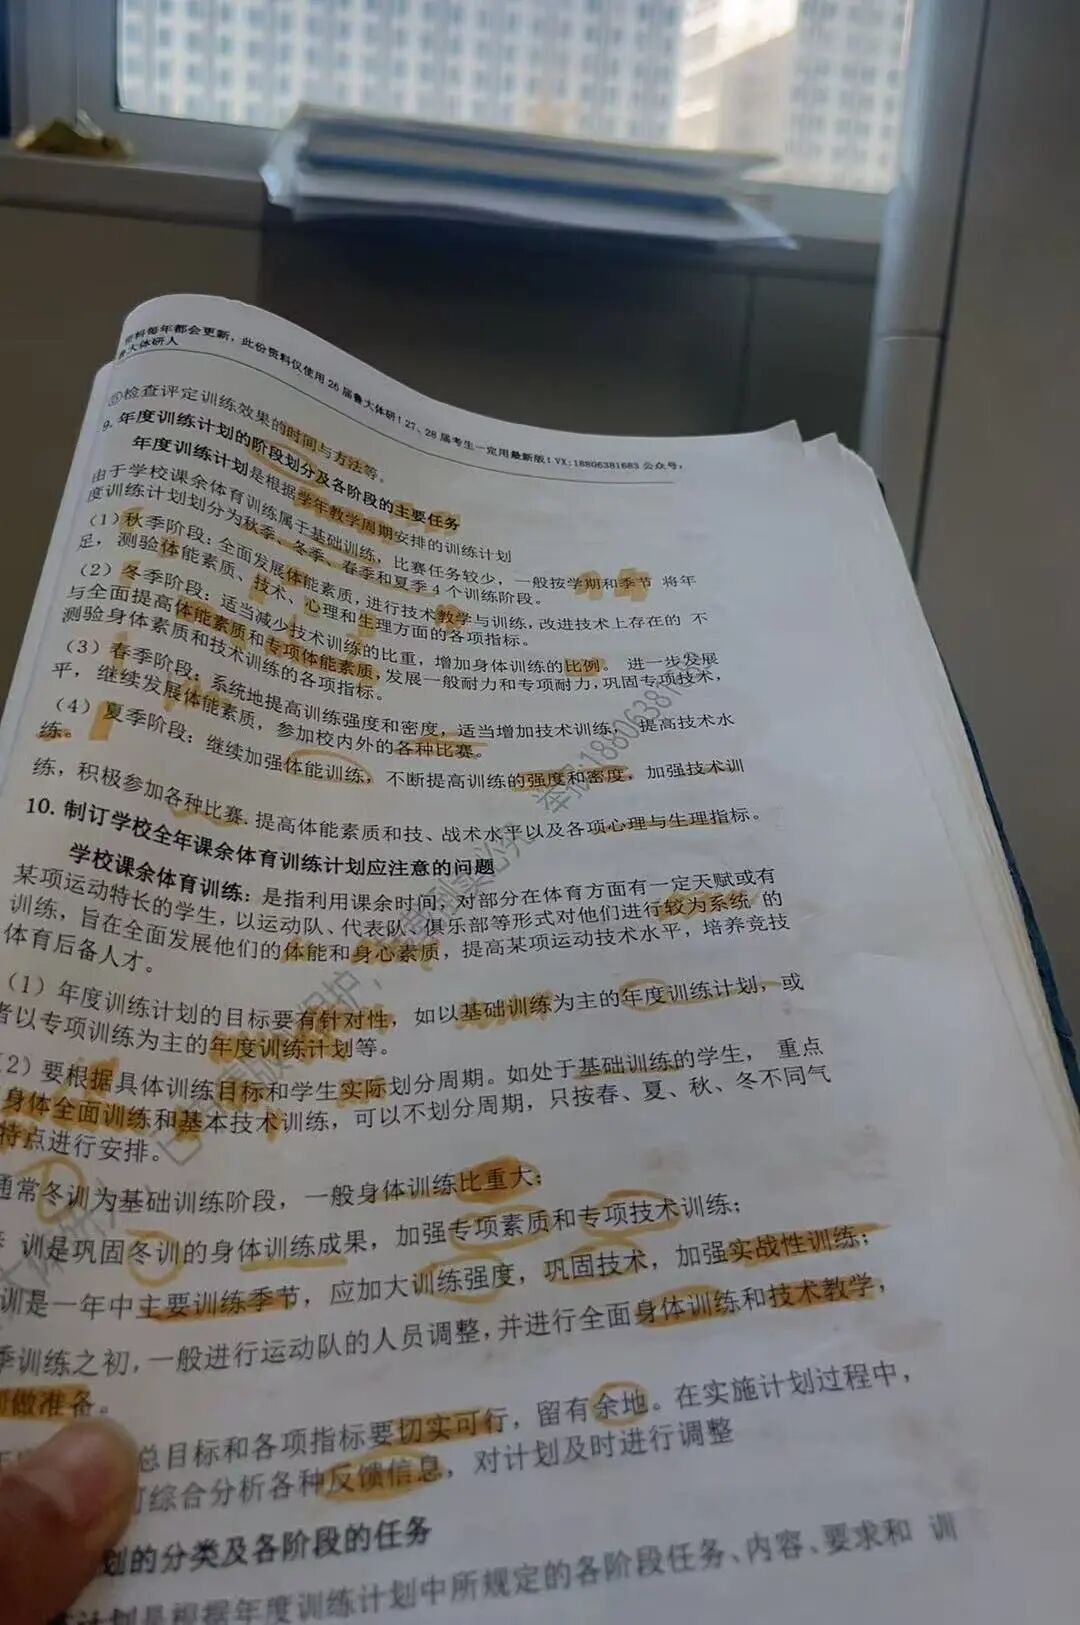 资料每年都会更新，此份资料仅使用26届鲁大体研！27、28届考生一定用最新版！VX：18806381683 公众号：
鲁大体研人
⑤检查评定训练效果的时间与方法等。
9. 年度训练计划的阶段划分及各阶段的主要任务
年度训练计划是根据学年教学周期安排的训练计划
由于学校课余体育训练属于基础训练，比赛任务较少，一般按学期和季节 将年
度训练计划划分为秋季、冬季、春季和夏季4个训练阶段。
（1）秋季阶段：全面发展体能素质，进行技术教学与训练，改进技术上存在的 不
足，测验体能素质、技术、心理和生理方面的各项指标。
（2）冬季阶段：适当减少技术训练的比重，增加身体训练的比例。 进一步发展
与全面提高体能素质和专项体能素质，发展一般耐力和专项耐力，巩固专项技术，
测验身体素质和技术训练的各项指标。
（3）春季阶段：系统地提高训练强度和密度，适当增加技术训练， 提高技术水
平，继续发展体能素质，参加校内外的各种比赛。
（4）夏季阶段：继续加强体能训练，不断提高训练的强度和密度，加强技术训
练。
练，积极参加各种比赛.提高体能素质和技、战术水平以及各项心理与生理指标。
10. 制订学校全年课余体育训练计划应注意的问题
学校课余体育训练：是指利用课余时间，对部分在体育方面有一定天赋或有
某项运动特长的学生，以运动队、代表队、俱乐部等形式对他们进行较为系统 的
训练，旨在全面发展他们的体能和身心素质，提高某项运动技术水平，培养竞技
体育后备人才。
（1）年度训练计划的目标要有针对性，如以基础训练为主的年度训练计划，或
者以专项训练为主的年度训练计划等。
2）要根据具体训练目标和学生实际划分周期。如处于基础训练的学生， 重点
身体全面训练和基本技术训练，可以不划分周期，只按春、夏、秋、冬不同气
特点进行安排。
通常冬训为基础训练阶段，一般身体训练比重大；
训是巩固冬训的身体训练成果，加强专项素质和专项技术训练；
训是一年中主要训练季节，应加大训练强度，巩固技术，加强实战性训练；
季训练之初，一般进行运动队的人员调整，并进行全面身体训练和技术教学，
做准备。
总目标和各项指标要切实可行，留有余地。在实施计划过程中，
综合分析各种反馈信息，对计划及时进行调整
划的分类及各阶段的任务
计划是根据年度训练计划中所规定的各阶段任务、内容、要求和 训